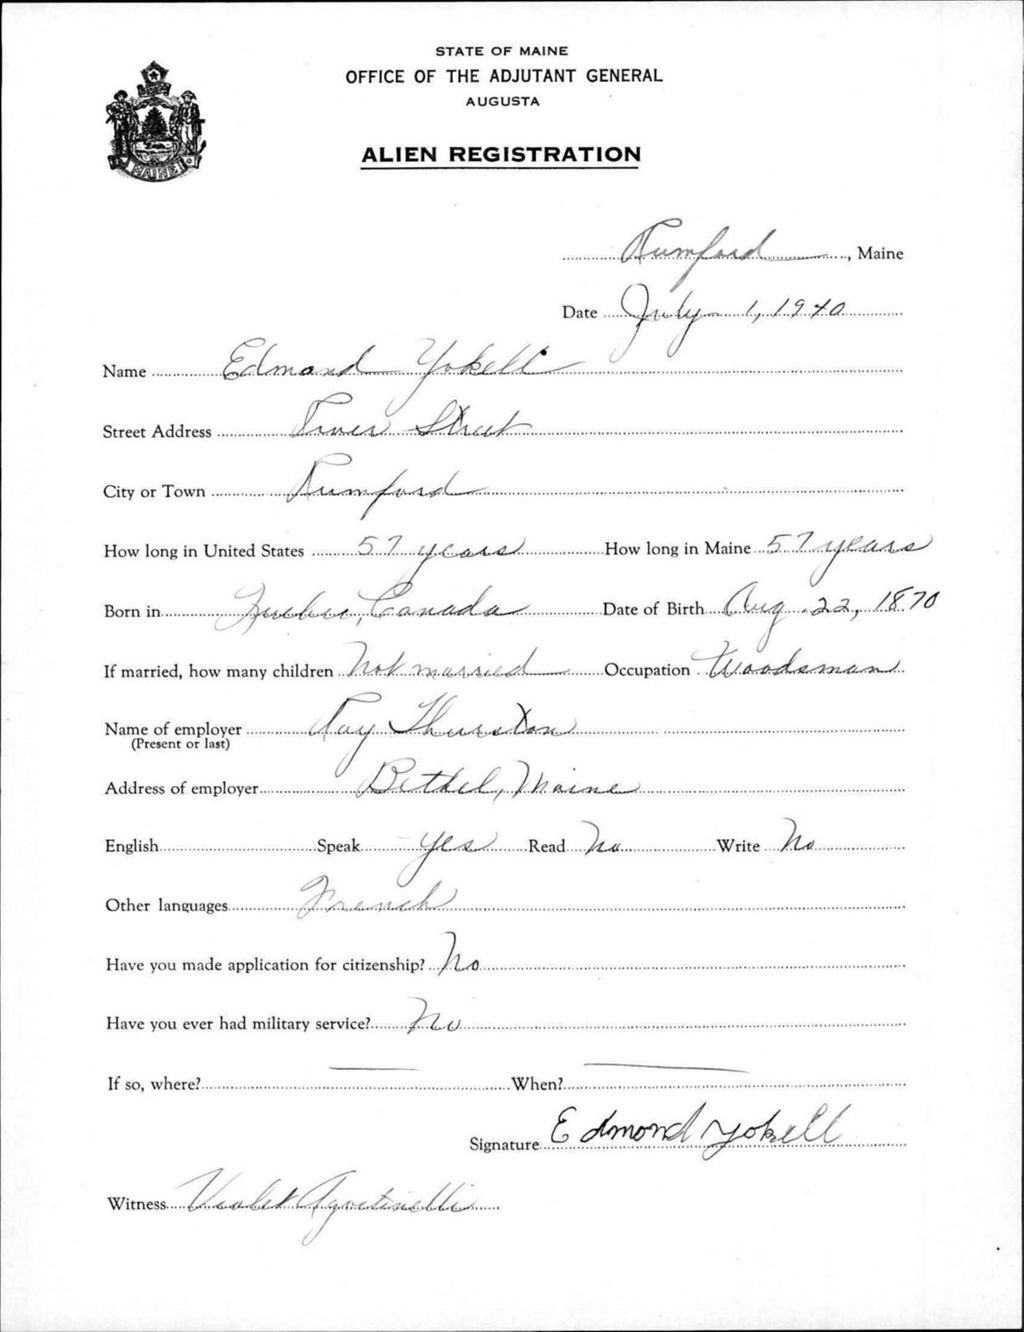 STATE OF MAINE
OFFICE OF THE ADJUTANT GENERAL
AUGUSTA
MAINE
ALIEN REGISTRATION
Rumford, Maine
Date July 1, 1940
Name Edmond Yokell
Street Address River Street
City or Town Rumford
How long in United States 57 years How long in Maine 57 years
Born in Quebec, Canada Date of Birth Aug. 22, 1870
If married, how many children Not married Occupation Woodsman
Name of employer Ray Thurston
(Present or last)
Address of employer Bethel, Maine
English Speak yes Read No Write No
Other languages French
Have you made application for citizenship? No
Have you ever had military service? No
If so, where? — When? —
Signature Edmond Yokell
Witness Violet Agostinelli